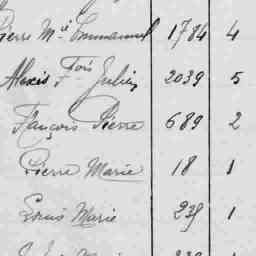 Pierre Mie Emmanuel 1784 4
Alexis Fois Julien 2039 5
François Pierre 689 2
Pierre Marie 18 1
Louis Marie 239 1